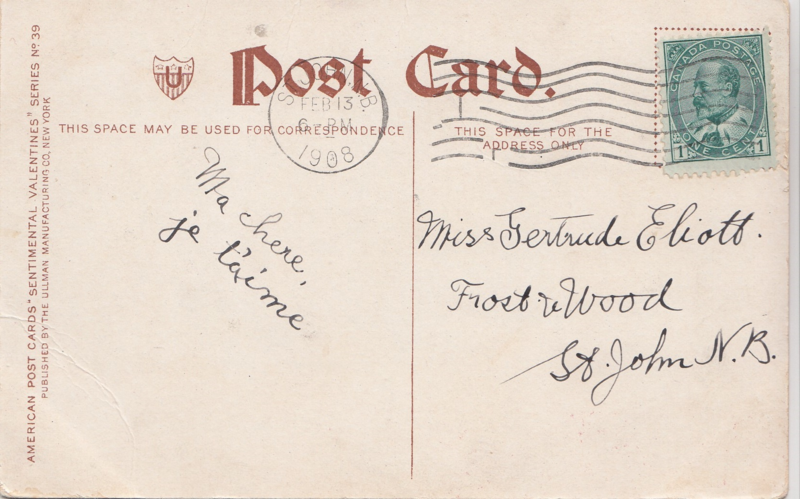 AMERICAN POST CARDS "SENTIMENTAL VALENTINES" SERIES No 39
PUBLISHED BY THE ULLMAN MANUFACTURING CO, NEW YORK
U
Post Card.
THIS SPACE MAY BE USED FOR CORRESPONDENCE
THIS SPACE FOR THE
ADDRESS ONLY
ST. JOHN, N.B.
FEB 13
6-PM
1908
CANADA POSTAGE
1 ONE CENT 1
Ma chere,
je t'aime
Miss Gertrude Eliott.
Frost & Wood
St. John N.B.